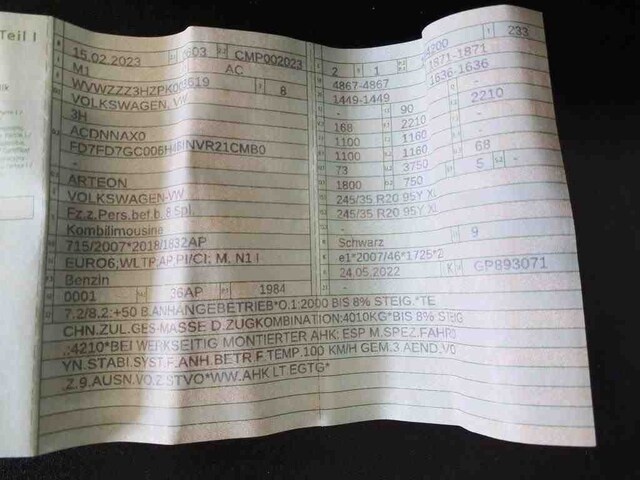 Teil I
15.02.2023 0603 CMP002023
M1 AC
8
VOLKSWAGEN, VW
3H
ACDNNAX0
-
ARTEON
VOLKSWAGEN-VW
Fz.z.Pers.bef.b. 8 Spl.
Kombilimousine
715/2007*2018/1832AP
EURO6;WLTP,AP,PI/CI; M, N1 I
Benzin
0001 36AP 1984
233
2 1 4200
4867-4867 1871-1871
1449-1449 1636-1636
- 90 -
168 2210 2210
1100 1160 -
1100 1160 -
73 3750 68
1800 750 5 -
245/35 R20 95Y XL
245/35 R20 95Y XL
-
Schwarz 9
e1*2007/46*1725*2
24.05.2022 K GP893071
7.2/8.2:+50 B.ANHÄNGEBETRIEB*O.1:2000 BIS 8% STEIG.*TE
CHN.ZUL.GES-MASSE D.ZUGKOMBINATION:4010KG*BIS 8% STEIG
.:4210*BEI WERKSEITIG MONTIERTER AHK: ESP M.SPEZ.FAHRD
YN.STABI.SYST.F.ANH.BETR F TEMP.100 KM/H GEM.3 AEND.VO
.Z.9.AUSN.VO.Z.STVO*WW.AHK LT EGTG*